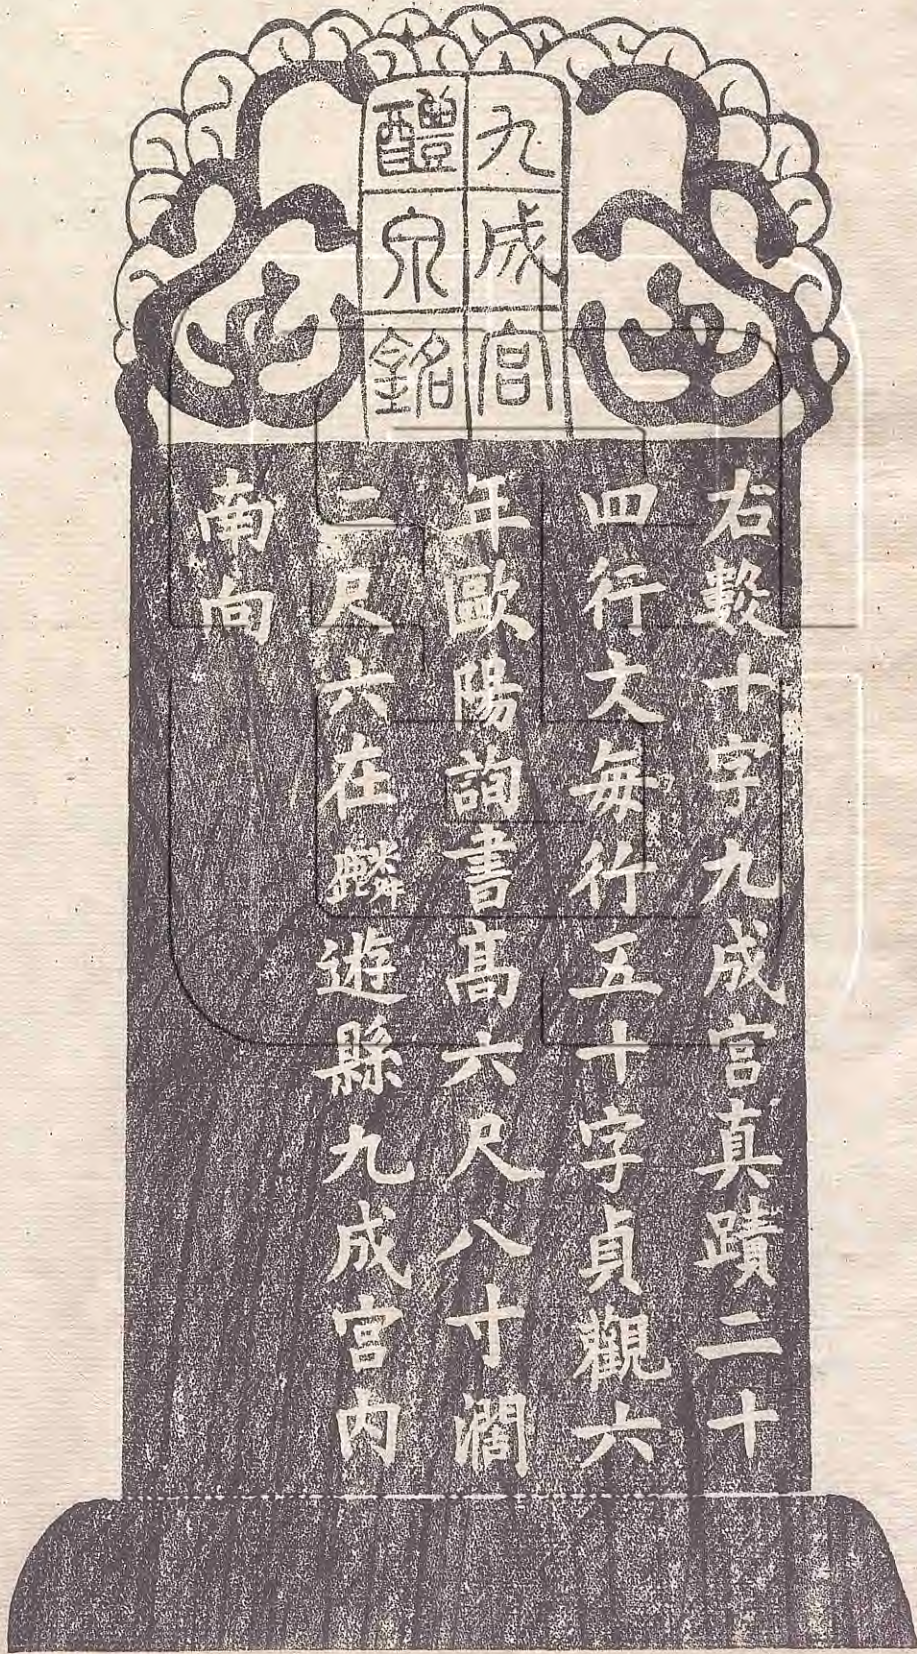 九成宮
醴泉銘
右數十字九成宮真蹟二十
四行文每行五十字貞觀六
年歐陽詢書髙六尺八寸濶
二尺六在麟遊縣九成宮内
南向